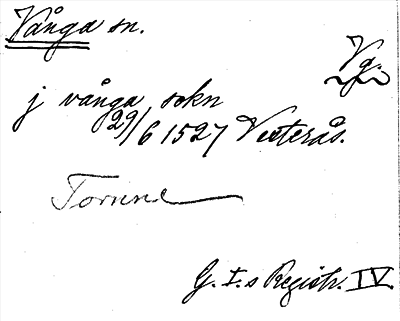 Vånga sn.
Vg.
j vånga sokn
29/6 1527 Vesterås.
G. I.s Registr. IV.